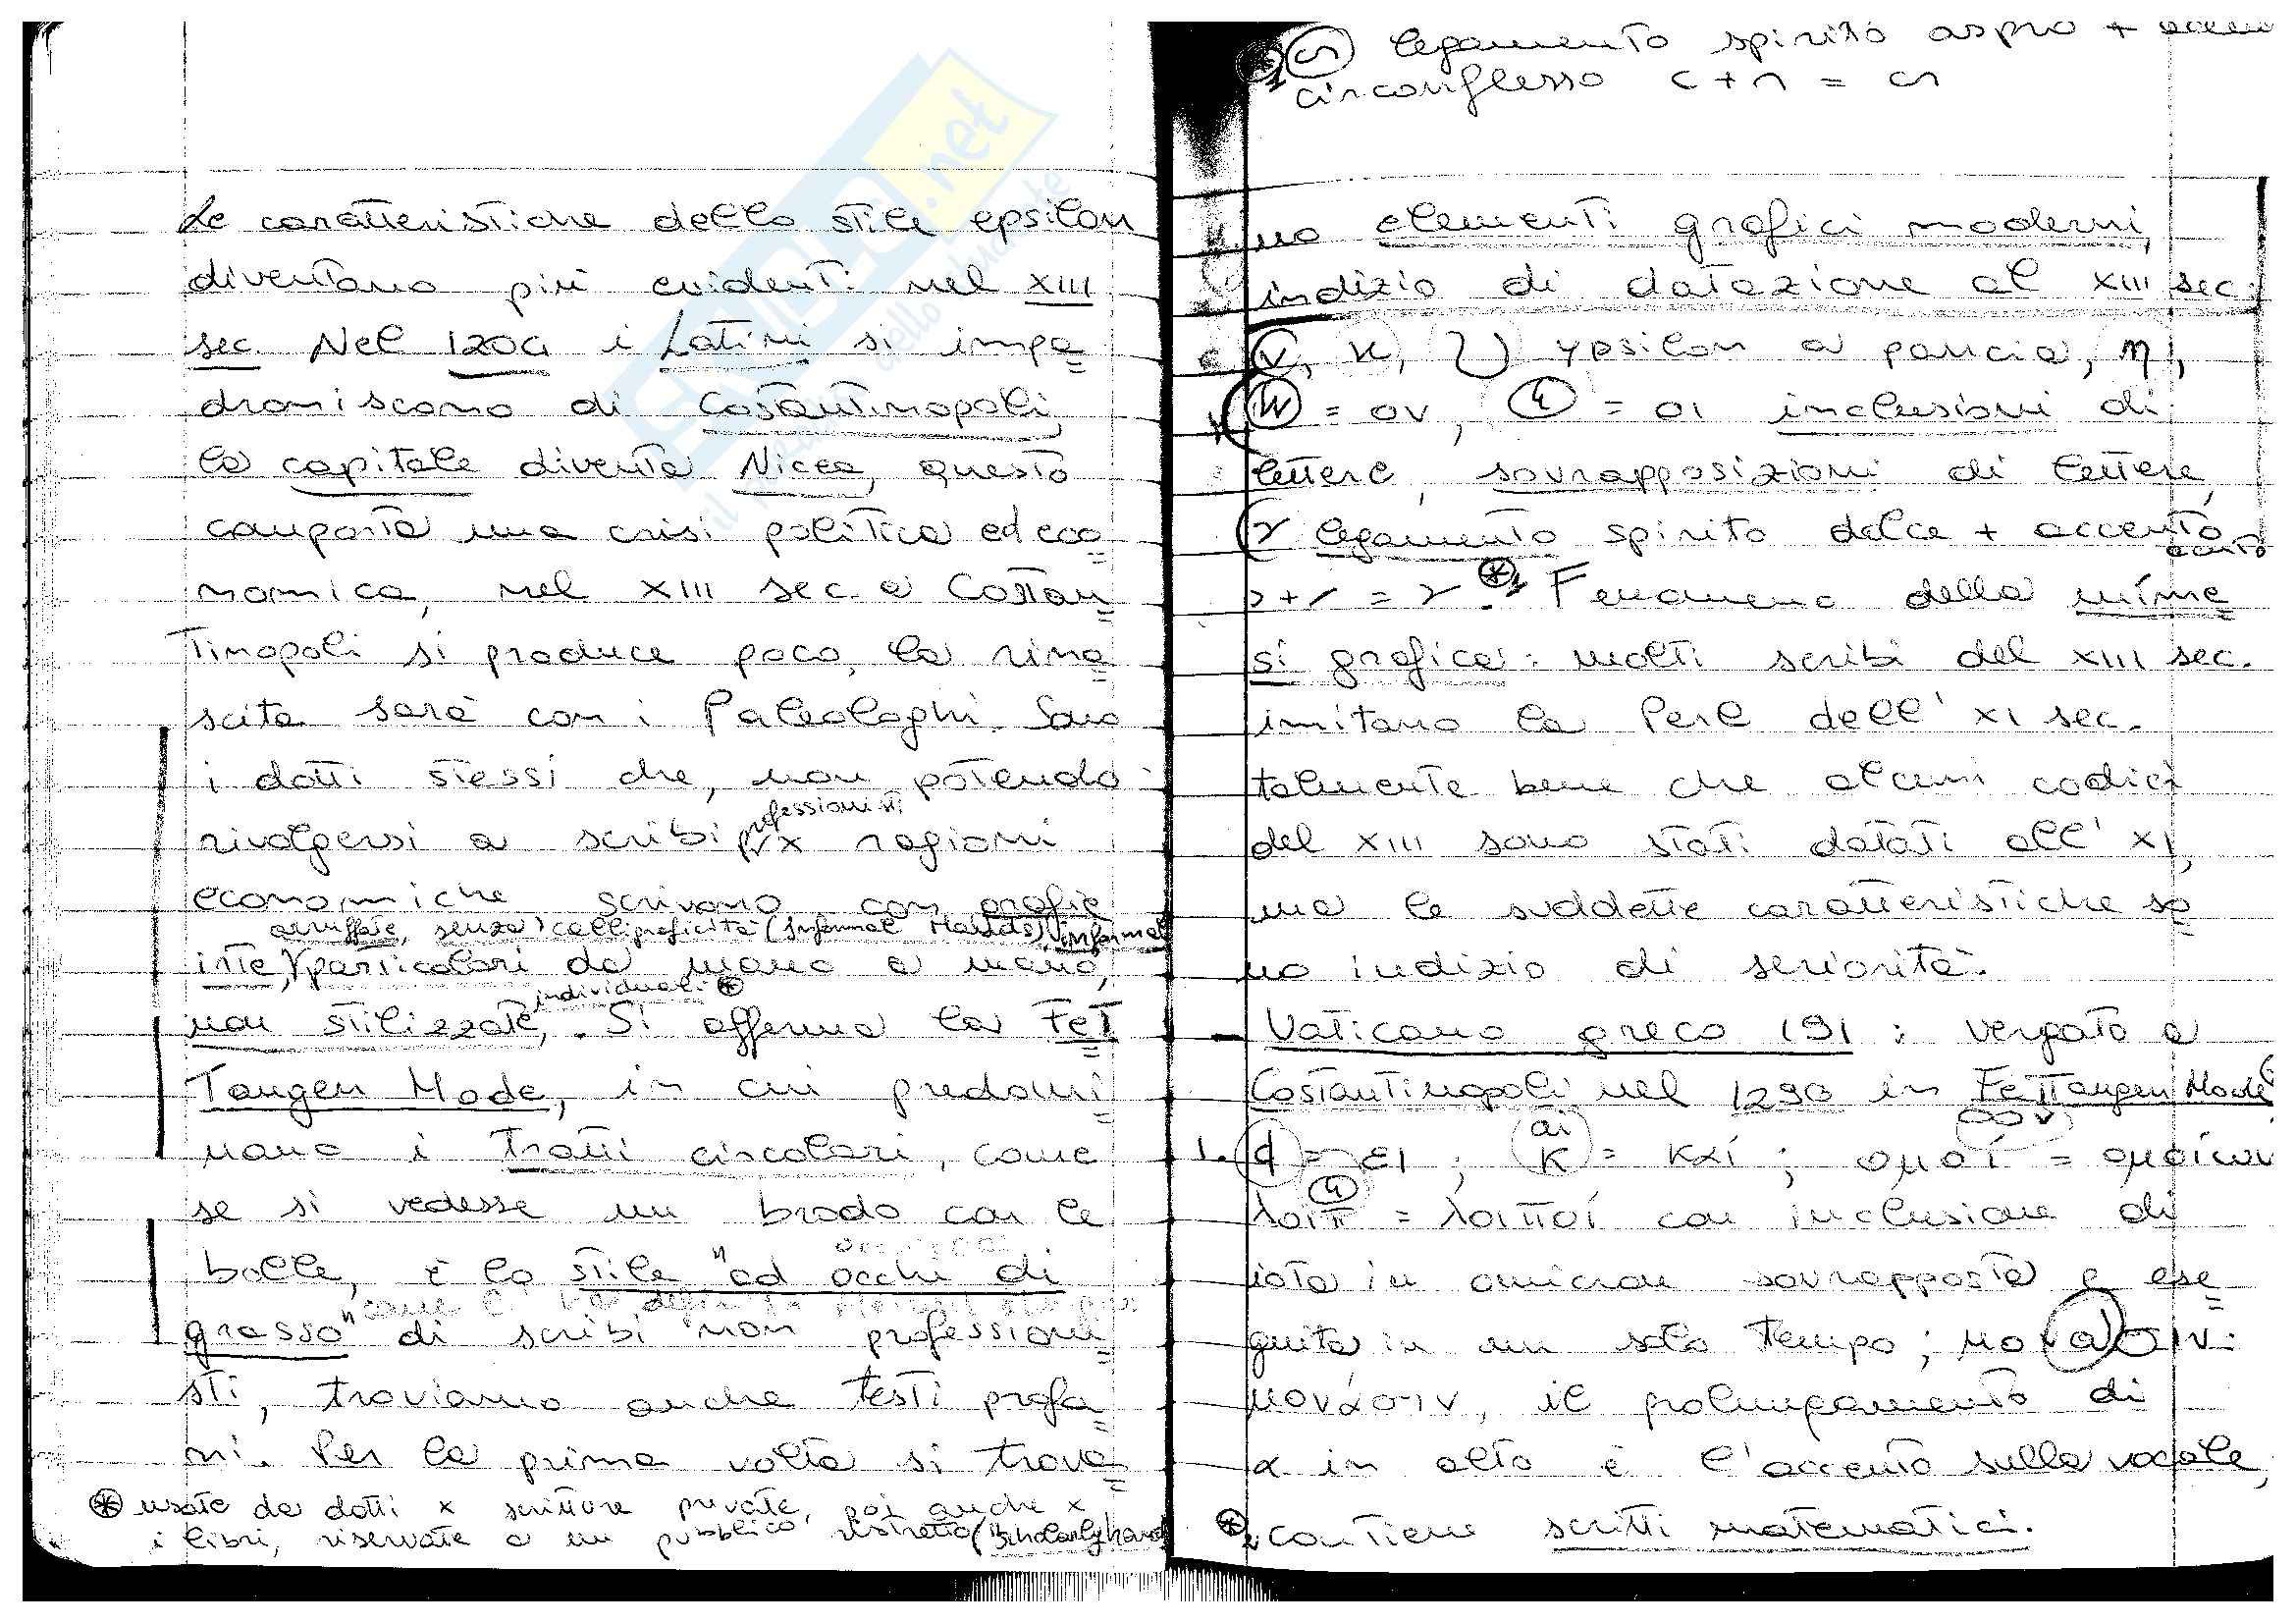 Le caratteristiche dello stile epsilon
diventano più evidenti nel XIII
sec. Nel 1204 i Latini si impa=
droniscono di Costantinopoli,
la capitale diventa Nicea, questo
comporta una crisi politica ed eco=
nomica, nel XIII sec. a Costan=
tinopoli si produce poco, la rina=
scita sarà con i Paleologhi. Sono
i dotti stessi che, non potendo
professionisti
rivolgersi a scribi x ragioni
economiche scrivono con grafie
arruffate, senza calligraficità (Informal Hands), informal
particolari da mano a mano,
individuali ⊛
non stilizzate, . Si afferma la Fet=
Taugen Mode, in cui predomi=
nano i tratti circolari, come
se si vedesse un brodo con le
bolle, è lo stile "ad occhi di
grasso" di scribi non professioni=
sti, troviamo anche testi profa=
ni. Per la prima volta si trova=
⊛ usate da dotti x scritture private, poi anche x
i libri, riservate a un pubblico ristretto (scholarly hand
legamento spirito aspro + accen
circonflesso
no elementi grafici moderni,
indizio di datazione al XIII sec.
ν, κ, υ ypsilon a pancia, η,
= ου, = οι inclusioni di
lettere, sovrapposizioni di lettere,
legamento spirito dolce + accento
acuto
Fenomeno della mime=
si grafica: molti scribi del XIII sec.
imitano la Perl dell' XI sec.
talmente bene che alcuni codici
del XIII sono stati datati all' XI,
ma le suddette caratteristiche so=
no indizio di seriorità.
- Vaticano greco 191 : vergato a
Costantinopoli nel 1290 in Fettaugen Mode
1. = ει ; = και ; ομοί = ομοίων
= λοιποί con inclusione di
iota in omicron sovrapposta e ese=
guita in un solo tempo; μονάσιν:
μονασιν, il prolungamento di
α in alto è l'accento sulla vocale,
contiene scritti matematici.